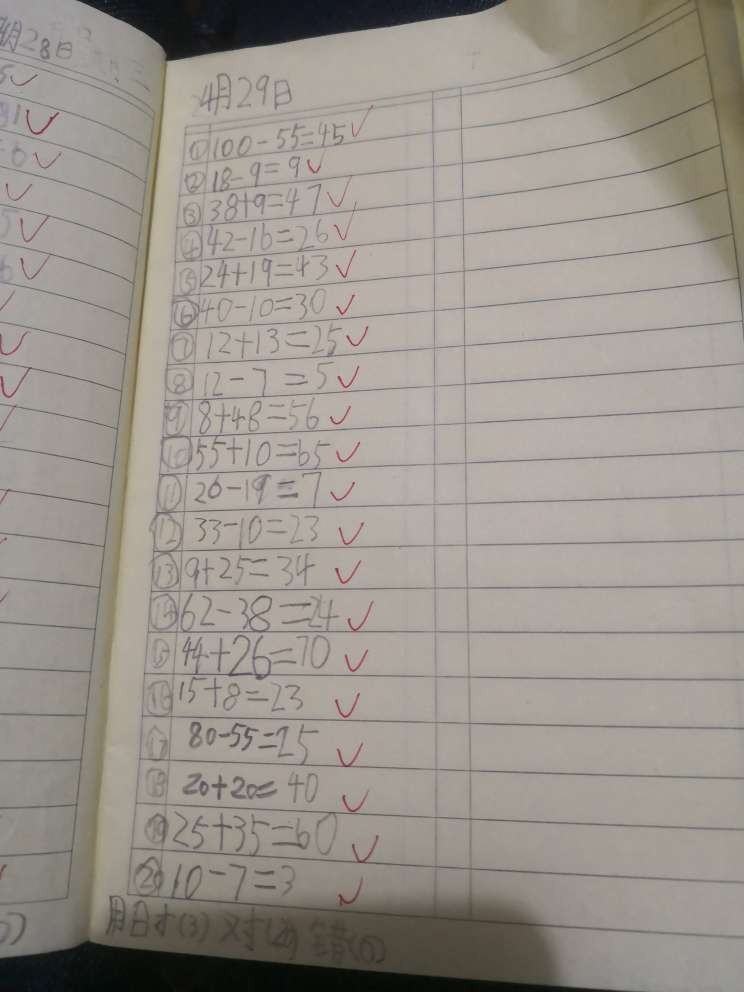 4月28日
4月29日
① 100-55=45
② 18-9=9
③ 38+9=47
④ 42-16=26
⑤ 24+19=43
⑥ 40-10=30
⑦ 12+13=25
⑧ 12-7=5
⑨ 8+48=56
⑩ 55+10=65
⑪ 26-19=7
⑫ 33-10=23
⑬ 9+25=34
⑭ 62-38=24
⑮ 44+26=70
⑯ 15+8=23
⑰ 80-55=25
⑱ 20+20=40
⑲ 25+35=60
⑳ 10-7=3
用时(3) 对(20) 错(0)